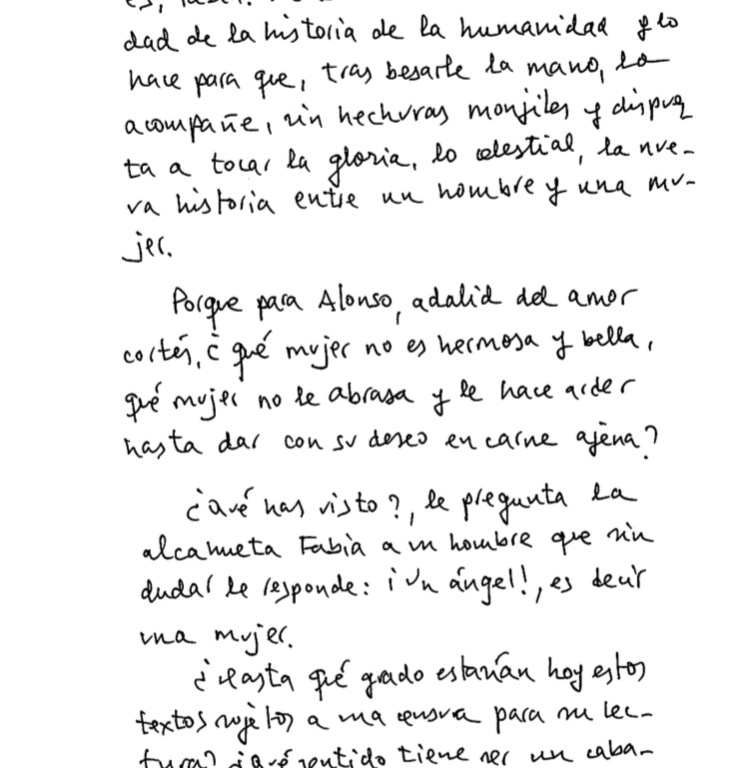 dad de la historia de la humanidad y lo
hace para que, tras besarle la mano, lo
acompañe, sin hechuras monjiles y dispues
ta a tocar la gloria, lo celestial, la nue-
va historia entre un hombre y una mu-
jer.
Porque para Alonso, adalid del amor
cortés, ¿ qué mujer no es hermosa y bella,
qué mujer no le abrasa y le hace arder
hasta dar con su deseo en carne ajena?
¿Qué has visto?, le pregunta la
alcahueta Fabia a un hombre que sin
dudar le responde: ¡Un ángel!, es decir
una mujer.
¿Hasta qué grado estarían hoy estos
textos sujetos a una censura para su lec-
tura? ¿Qué sentido tiene ser un caba-